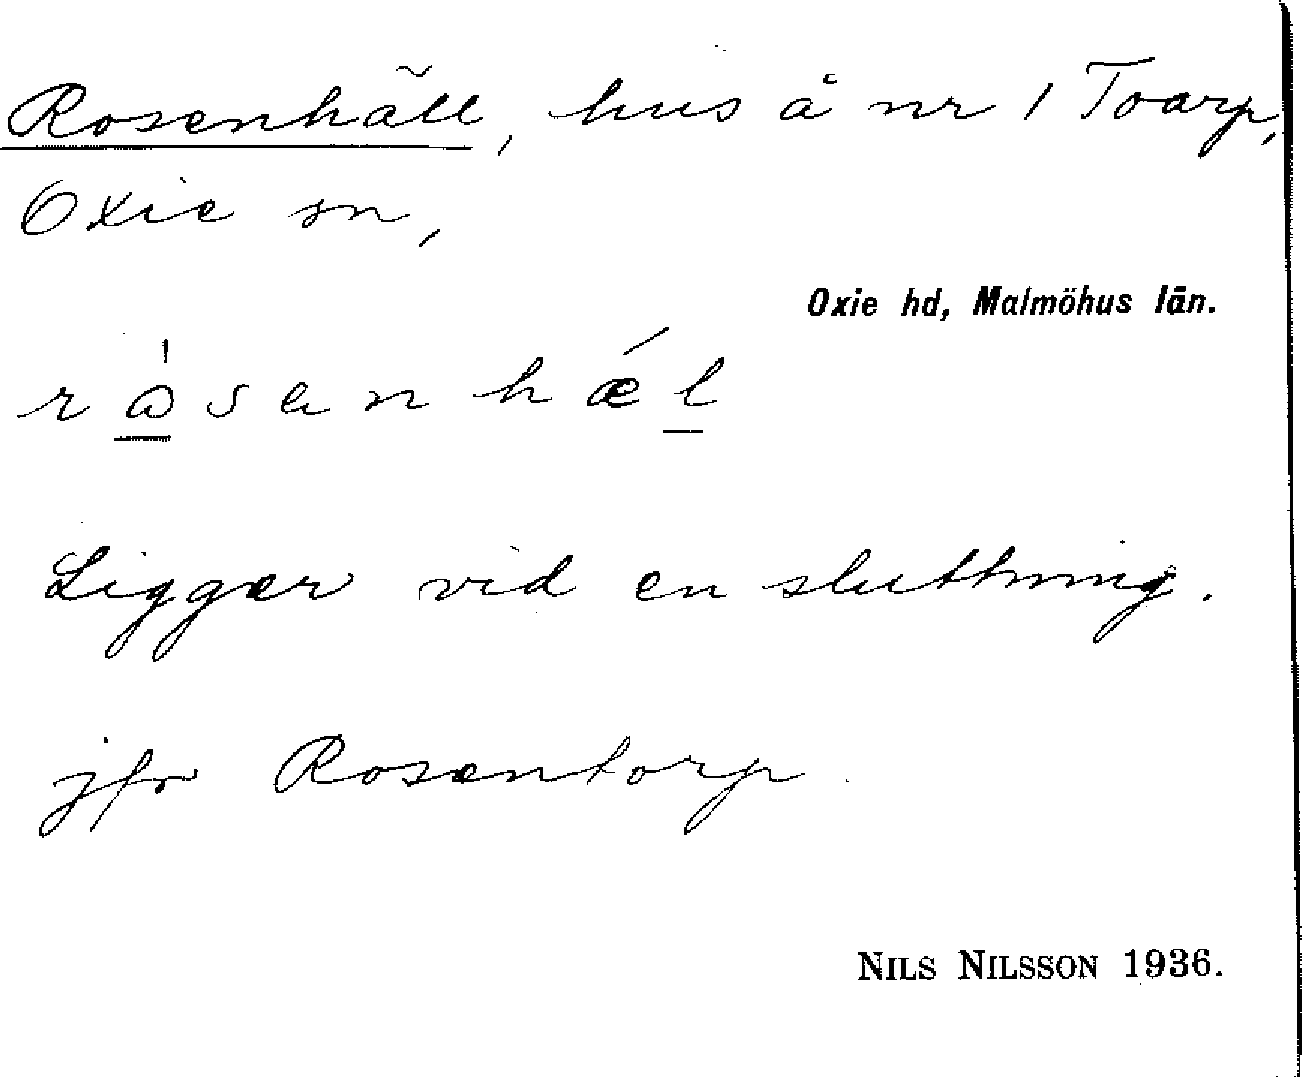 Rosenhäll, hus å nr 1 Toarp,
Oxie sn,
Oxie hd, Malmöhus län.
Ligger vid en sluttning.
jfr Rosentorp
NILS NILSSON 1936.